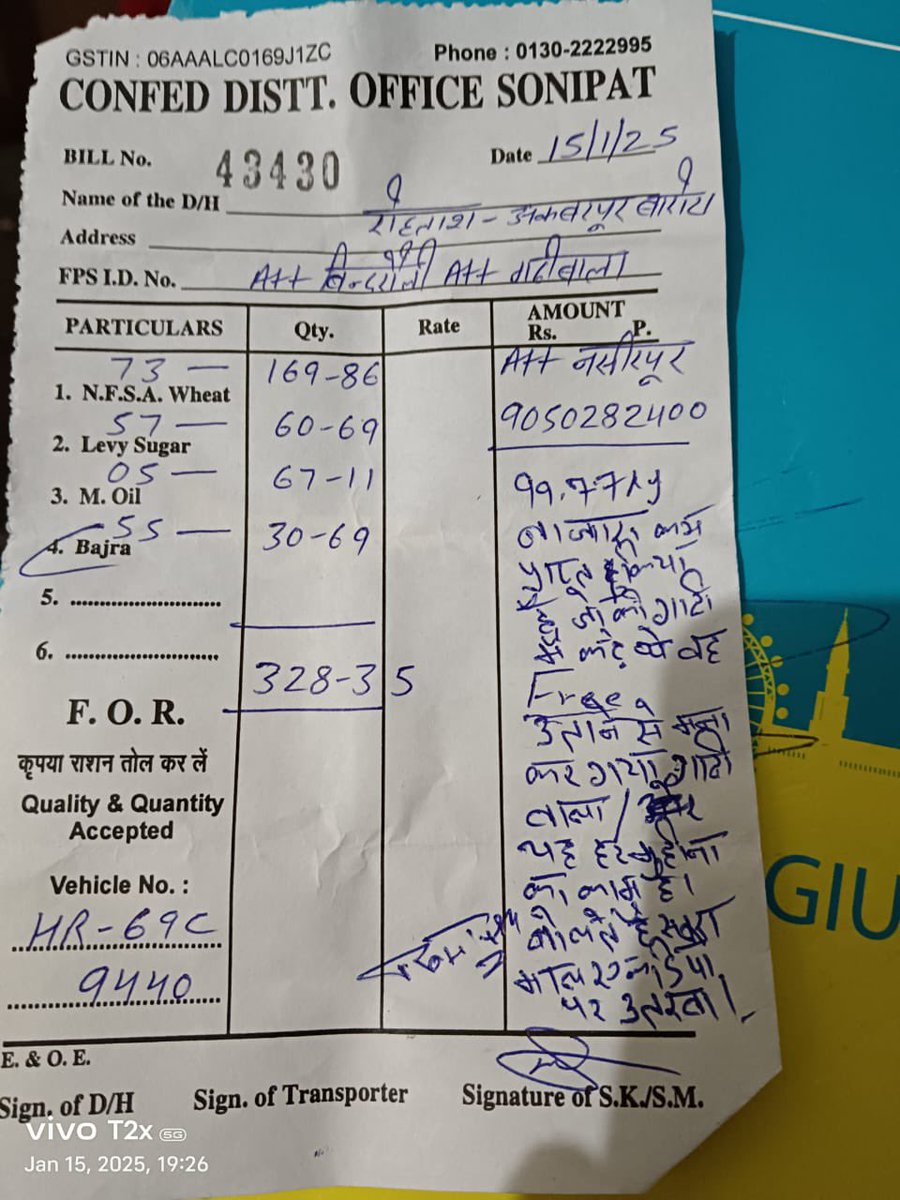 GSTIN : 06AAALC0169J1ZC Phone : 0130-2222995
CONFED DISTT. OFFICE SONIPAT
BILL No. 43430 Date 15/1/25
Name of the D/H रोहताश - अकबरपुर बारोटा
Address
FPS I.D. No. Att Att गढीबाला
PARTICULARS Qty. Rate AMOUNT
Rs. P.
73 — 169-86 Att नसीरपूर
1. N.F.S.A. Wheat
57 — 60-69 9050282400
2. Levy Sugar
05 — 67-11
3. M. Oil
55 — 30-69
4. Bajra
5.
6.
328-35
99.77
कम
जो की गाडी
वह
Free
से मना
कर गया गाडी
वाला /
यह हर महीना
का काम है।
बोलते है
माल
पर उतरेगा।
F. O. R.
कृपया राशन तोल कर लें
Quality & Quantity
Accepted
Vehicle No. :
HR-69C
9440
E. & O. E.
Sign. of D/H Sign. of Transporter Signature of S.K./S.M.
vivo T2x 5G
Jan 15, 2025, 19:26
GIU